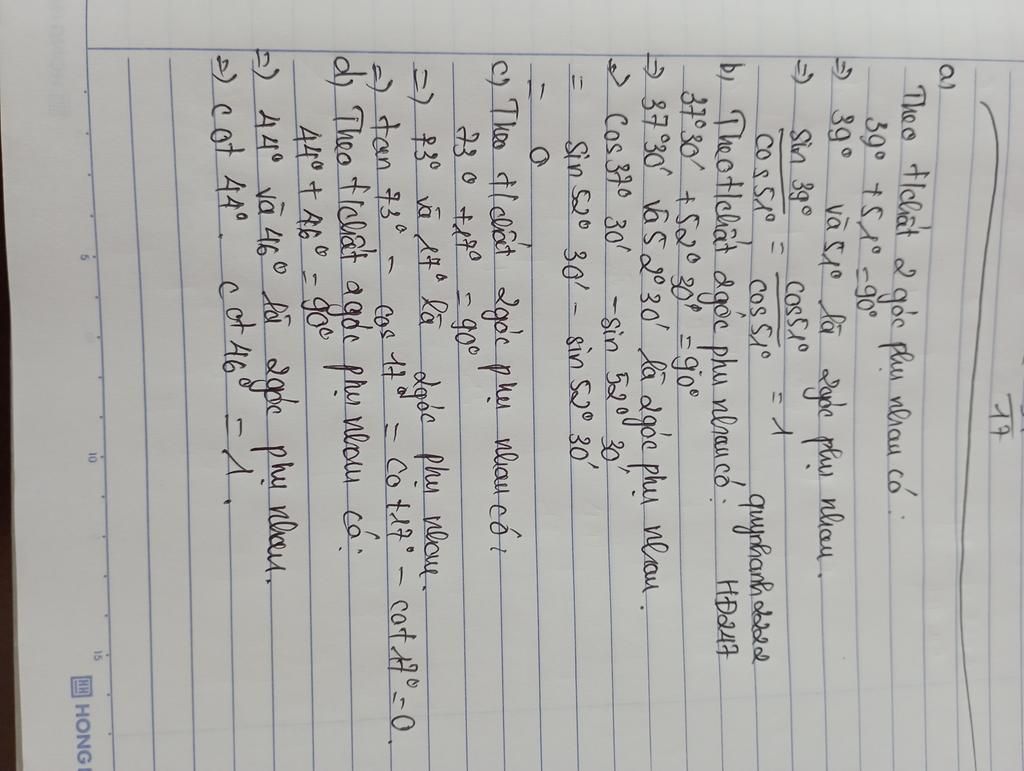 17
a)
Theo t/chất 2 góc phụ nhau có :
39° + 51° = 90°
=) 39° và 51° là 2 góc phụ nhau.
=) sin 39° / cos 51° = cos 51° / cos 51° = 1
b) Theo t/chất 2 góc phụ nhau có :
quynhanh2222
HĐ247
37° 30' + 52° 30' = 90°
=) 37° 30' và 52° 30' là 2 góc phụ nhau.
=) cos 37° 30' - sin 52° 30'
= sin 52° 30' - sin 52° 30'
= 0
c) Theo t/chất 2 góc phụ nhau có :
73° + 17° = 90°
=) 73° và 17° là 2 góc phụ nhau.
=) tan 73° - cos 17° = cot 17° - cot 17° = 0.
d) Theo t/chất 2 góc phụ nhau có :
44° + 46° = 90°
=) 44° và 46° là 2 góc phụ nhau.
=) cot 44° . cot 46° = 1.
5 10 15
HONG